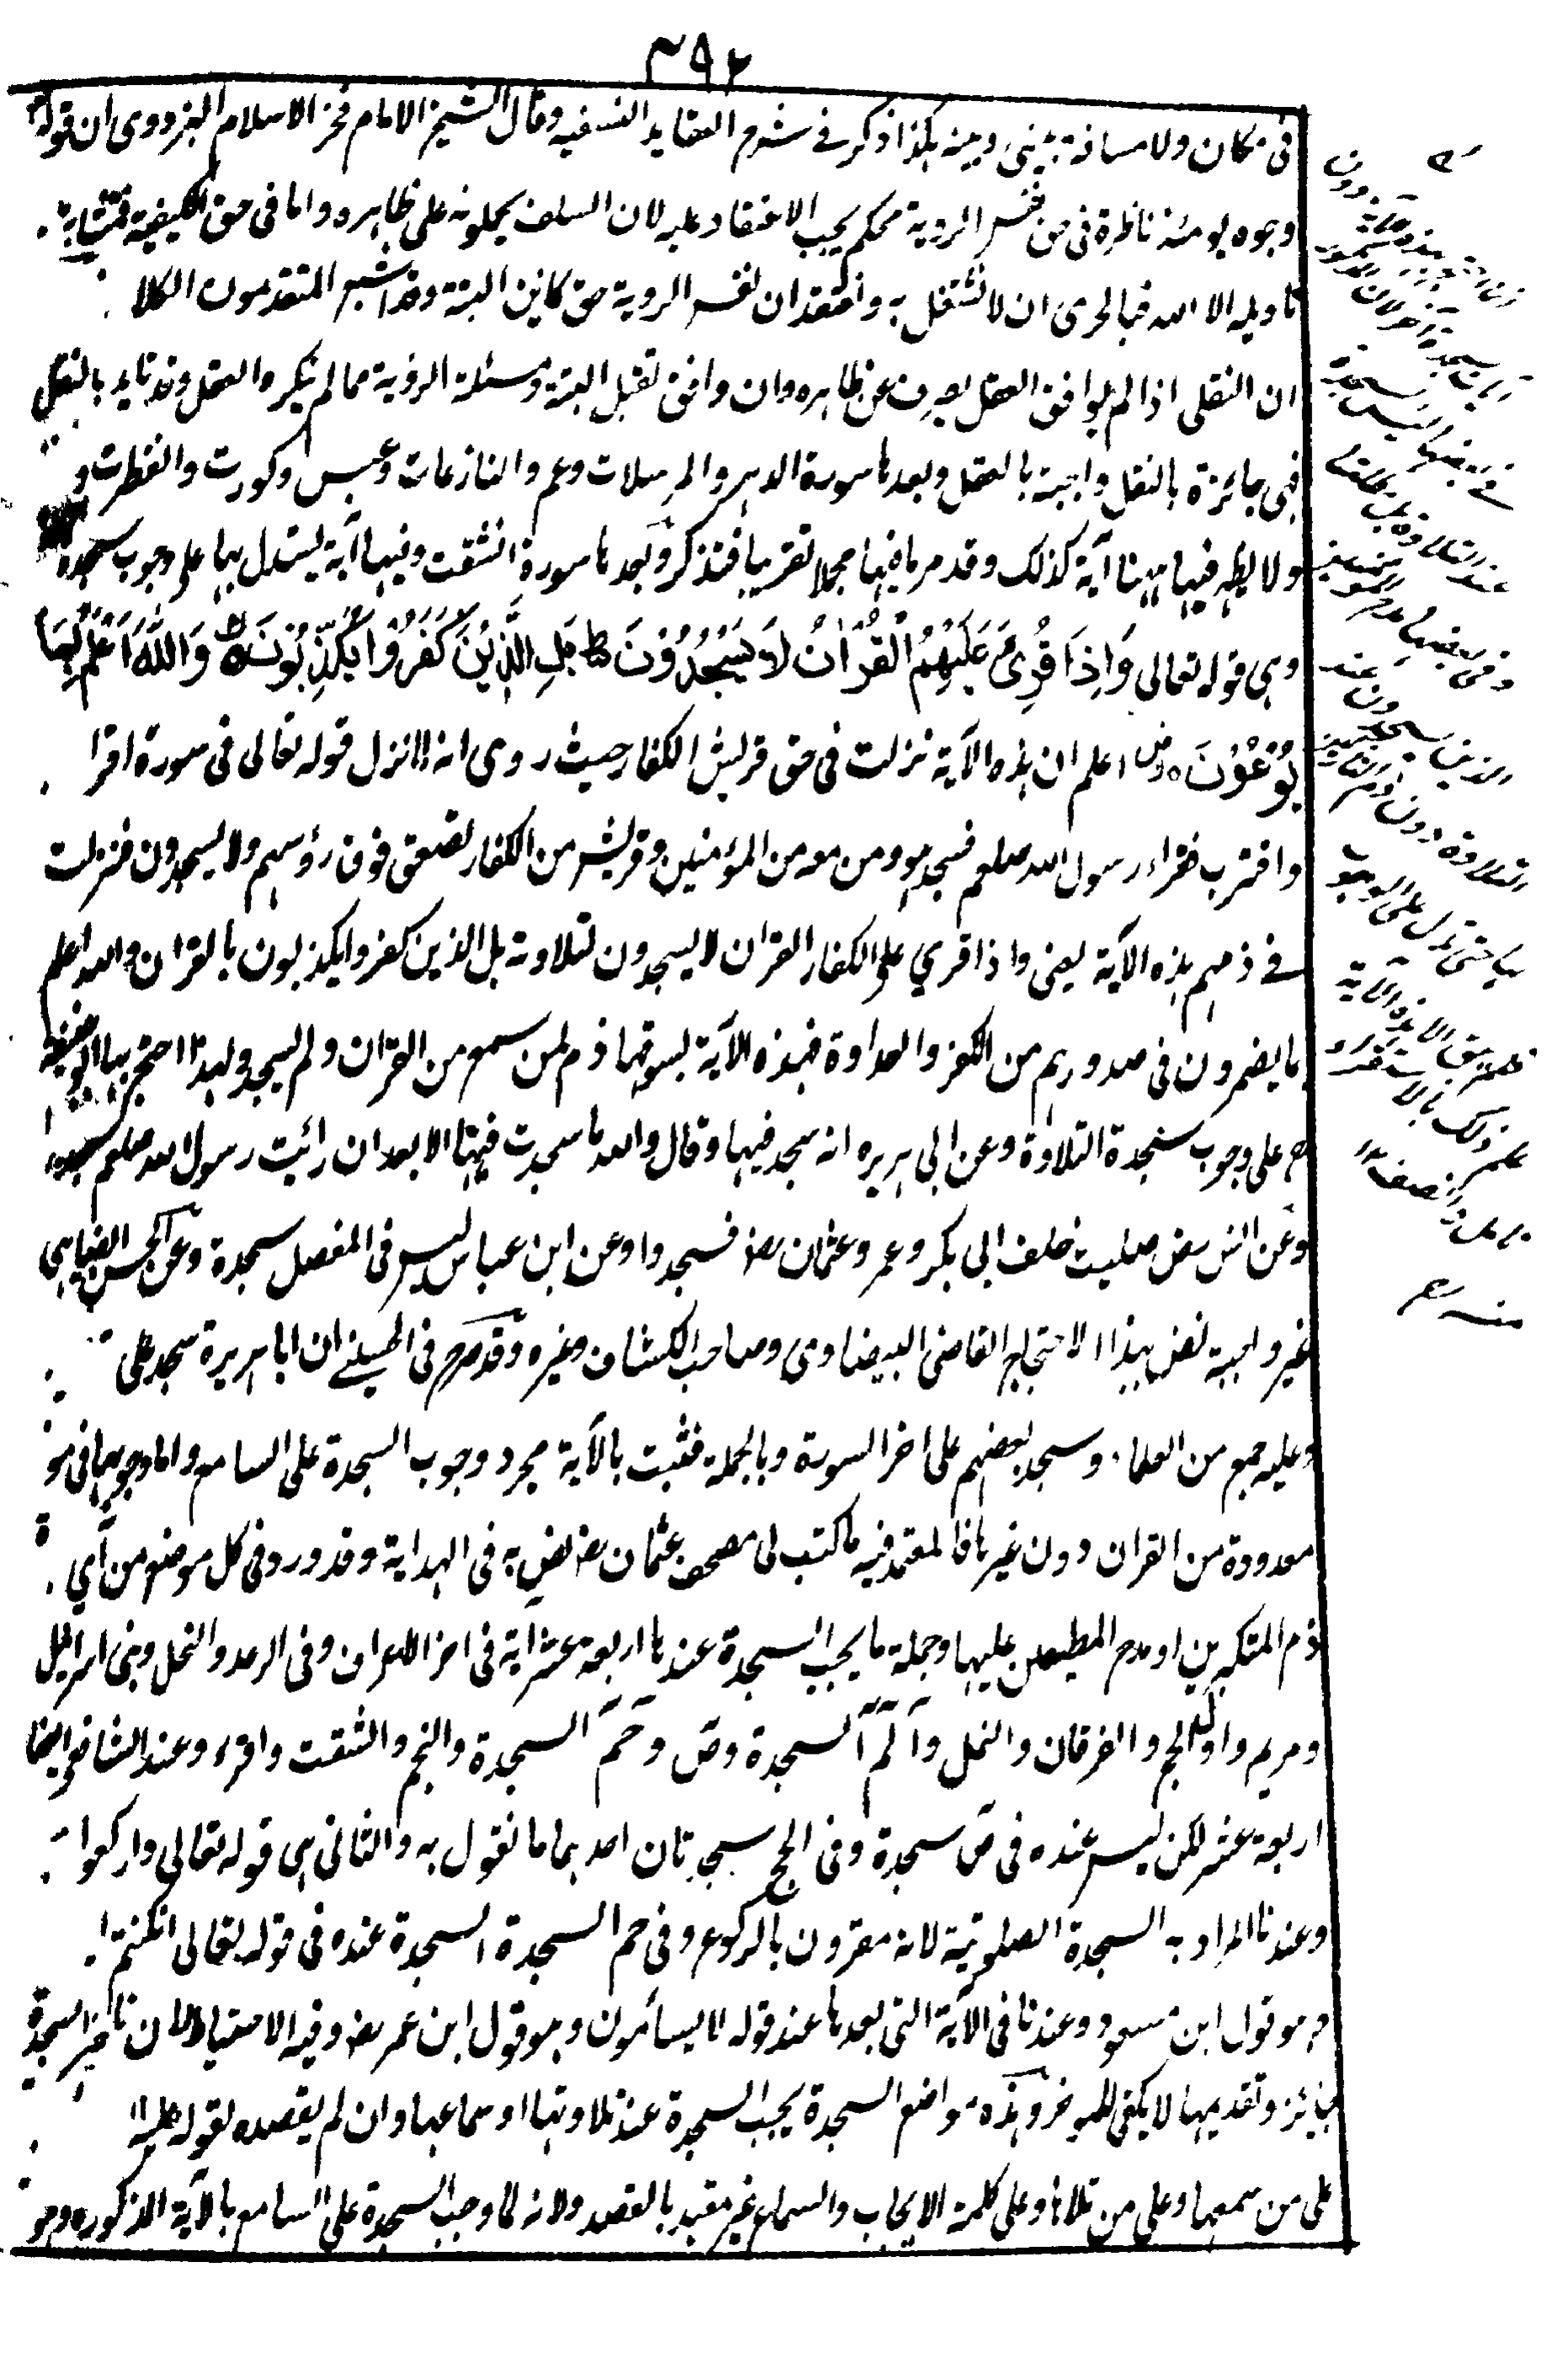 ٤٩٢
فى مكان ولا مسافة بينى وبينه هكذا ذكر فے شرح العقايد النسفيه وقال الشيخ الامام فخر الاسلام البزدوى ان قوله
وجوه يومئذ ناظرة فى حق نفس الروية محكم يجب الاعتقاد عليه لان السلف يحملونه على ظاهره واما فى حق الكيفية فمتشابه
تاويله الا الله فبالحرى ان لا نشتغل به واعتقد ان نفس الروية حق كاين البتة وقد اشبع المتقدمون الكلا
ان النقلى اذا لم يوافق العقل يصرف عن ظاهره وان وافق تقبل البتة ومسئلة الروية مما لم ينكره العقل وقد تايد بالنقل
فهى جائزة بالنقل واجبة بالعقل وبعدها سورة الدهر والمرسلات وعم والنازعات وعبس وكورت وانفطرت و
ولا يظهر فيها ههنا آية كذلك وقد مر ما فيها مجملا تقريبا فتذكر وبعدها سورة انشقت وفيها آية يستدل بها على وجوب سجدة
وهى قوله تعالى وَاِذَا قُرِئَ عَلَيْهِمُ الْقُرْاٰنُ لَا يَسْجُدُوْنَ ط بَلِ الَّذِيْنَ كَفَرُوْا يُكَذِّبُوْنَ وَاللّٰهُ اَعْلَمُ بِمَا
يُوْعُوْنَ ه اعلم ان هذه الآية نزلت فى حق قريش الكفار حيث روى انه لما نزل قوله تعالى فى سورة اقرا
واقترب فقراء رسول الله صلعم فسجد هو ومن معه من المؤمنين وقريش من الكفار تصفق فوق رؤسهم ولا يسجدون فنزلت
فے ذمهم هذه الآية يعنى واذا قري على الكفار القران لا يسجدون لتلاوته بل الذين كفروا يكذبون بالقران والله اعلم
بما يضمرون فى صدورهم من الكفر والعداوة فهذه الآية بسوقها ذم لمن سمع من القران ولم يسجد ولهذا احتج بها ابو حنيفة
رح على وجوب سجدة التلاوة وعن ابى هريره انه سجد فيها وقال والله ما سجدت فيها الا بعد ان رائيت رسول الله صلعم سجدها
وعن انس رض صليت خلف ابى بكر وعمر وعثمان رض فسجدوا وعن ابن عباس ليس فى المفصل سجدة وعن الحسن ايضا هى
غير واجبة نص بهذا الاحتجاج القاضى البيضاوى وصاحب الكشاف وغيره وقد صرح فى الحسينے ان ابا هريرة سجد على
وعليه جمع من العلماء وسجد بعضهم على اخر السورة وبالجملة فثبت بالآية مجرد وجوب السجدة على السامع واما وجوبها فى مو
معدودة من القران دون غيرها فالمعتمد فيه ما كتب لى مصحف عثمان رض نص به فى الهداية وقد ورد فى كل موضع من آي
ذم المتكبرين او مدح المطيعين عليها وجملة ما يجب السجدة عندنا اربعة عشر اية فى اخر الاعراف وفى الرعد والنحل وبنى اسرائيل
ومريم واول الحج والفرقان والنمل وآلٓمٓ السجدة وصٓ وحٰمٓ السجدة والنجم وانشقت واقرء وعند الشافعى ايضا
اربعة عشر لكن ليس عنده فى صٓ سجدة وفى الحج سجدتان احدهما ما نقول به والثانى هى قوله تعالى واركعوا
وعندنا المراد به السجدة الصلوتية لانه مقرون بالركوع وفى حم السجدة السجدة عنده فى قوله تعالى ان كنتم ا
وهو قول ابن مسعود وعندنا فى الآية التى بعدها عند قوله لا يسأمون وهو قول ابن عمر رض وفيه الاحتياط لان تاخير السجدة
جائز وتقديمها لا يكفى للمؤخر وهذه مواضع السجدة يجب السجدة عند تلاوتها او سماعها وان لم يقصده لقوله عليه
على من سمعها وعلى من تلاها وعلى كلمة الايجاب والسماع غير مقيد بالقصد ولانه لما وجب السجدة على السامع بالآية المذكوره وجو